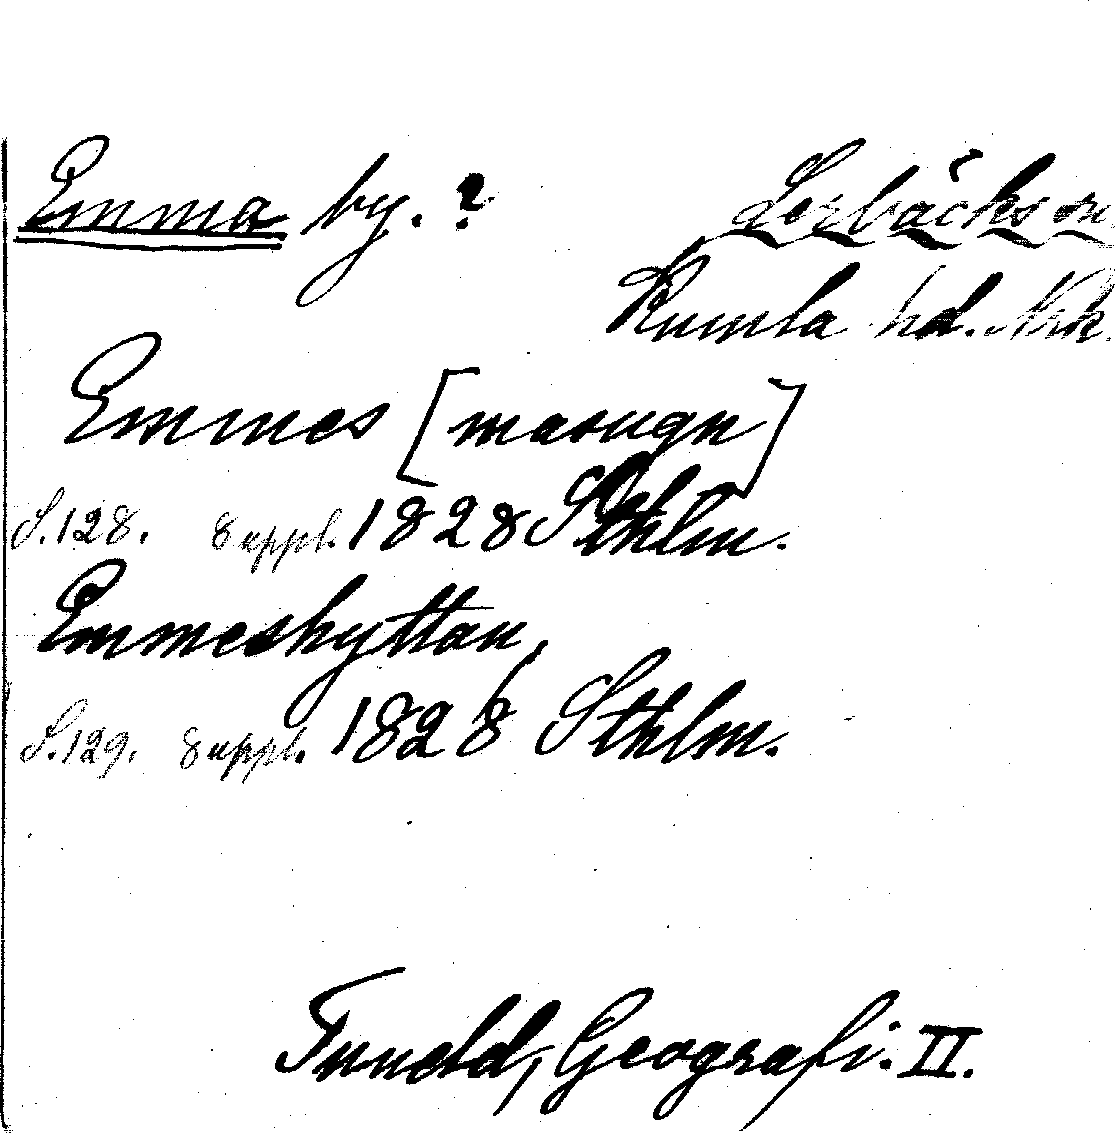 Emma by. ? Lerbäcks sn
Kumla hd. Nrk.
Emmes [masugn]
S. 128. Suppl. 1828 Sthlm.
Emmeshyttan,
S. 129. Suppl. 1828 Sthlm.
Tuneld, Geografi. II.